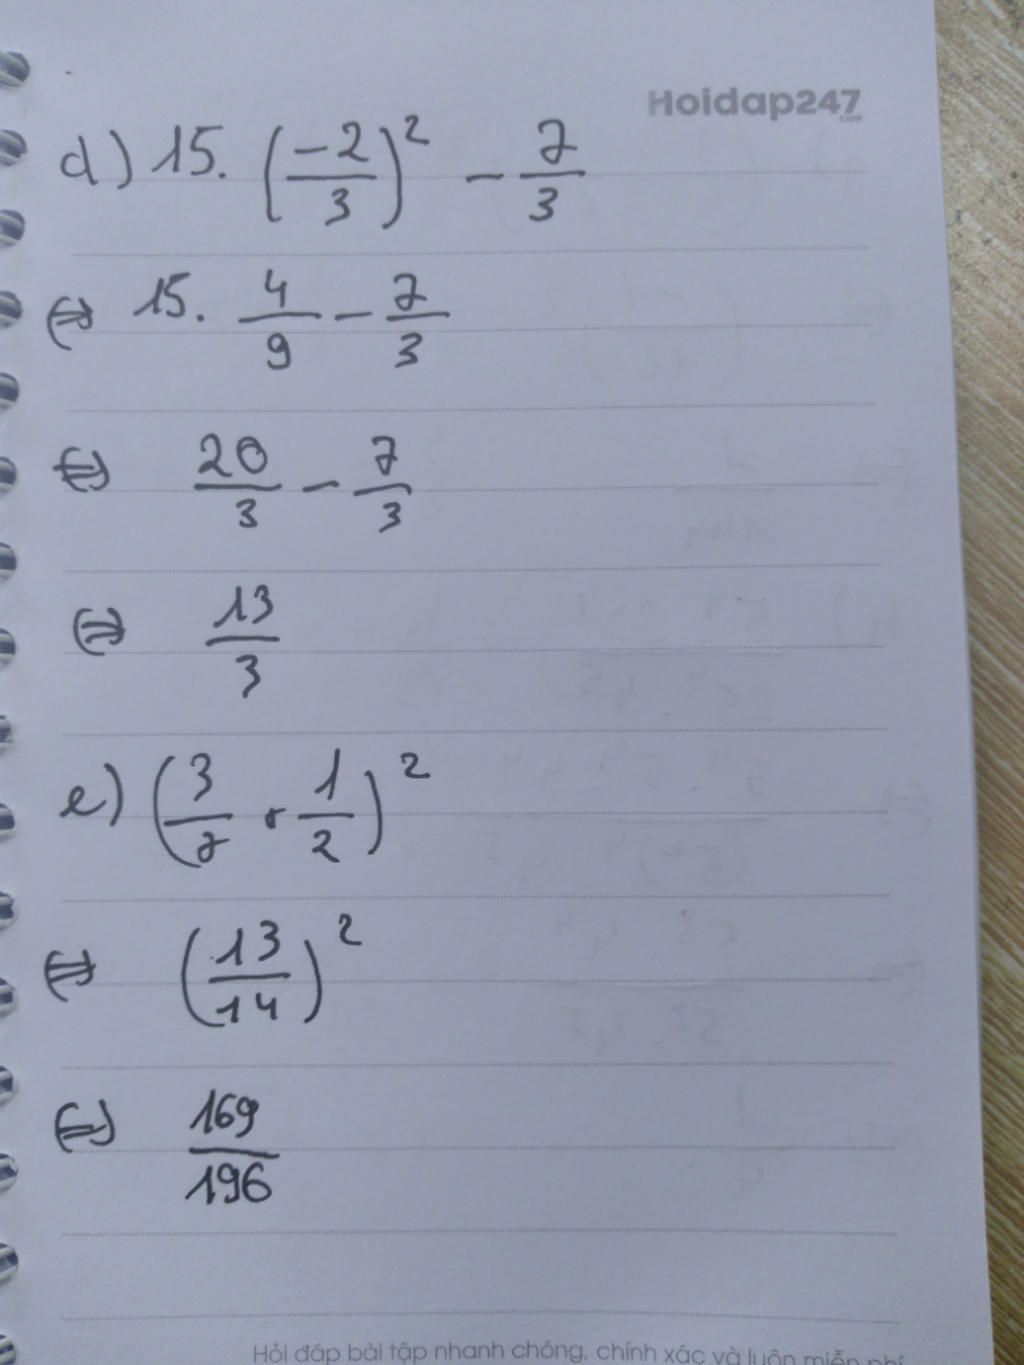 Hoidap247
.com
d) 15. (-2/3)² - 7/3
⇔ 15. 4/9 - 7/3
⇔ 20/3 - 7/3
⇔ 13/3
e) (3/7 + 1/2)²
⇔ (13/14)²
⇔ 169/196
Hỏi đáp bài tập nhanh chóng, chính xác và luôn miễn phí